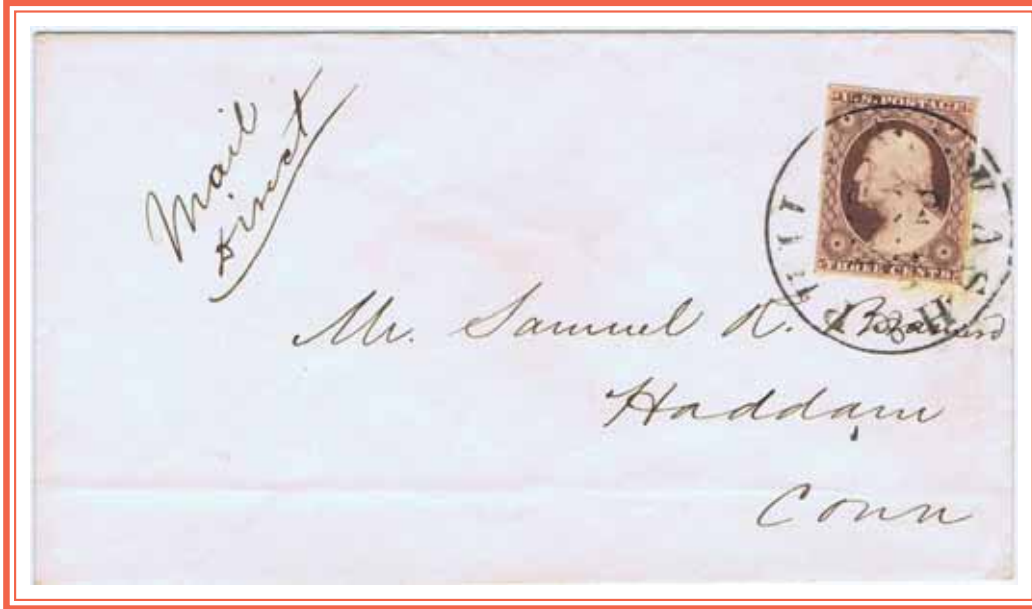 Mail
Direct
U.S. POSTAGE
THREE CENTS
Mr. Samuel R.
Haddam
Conn